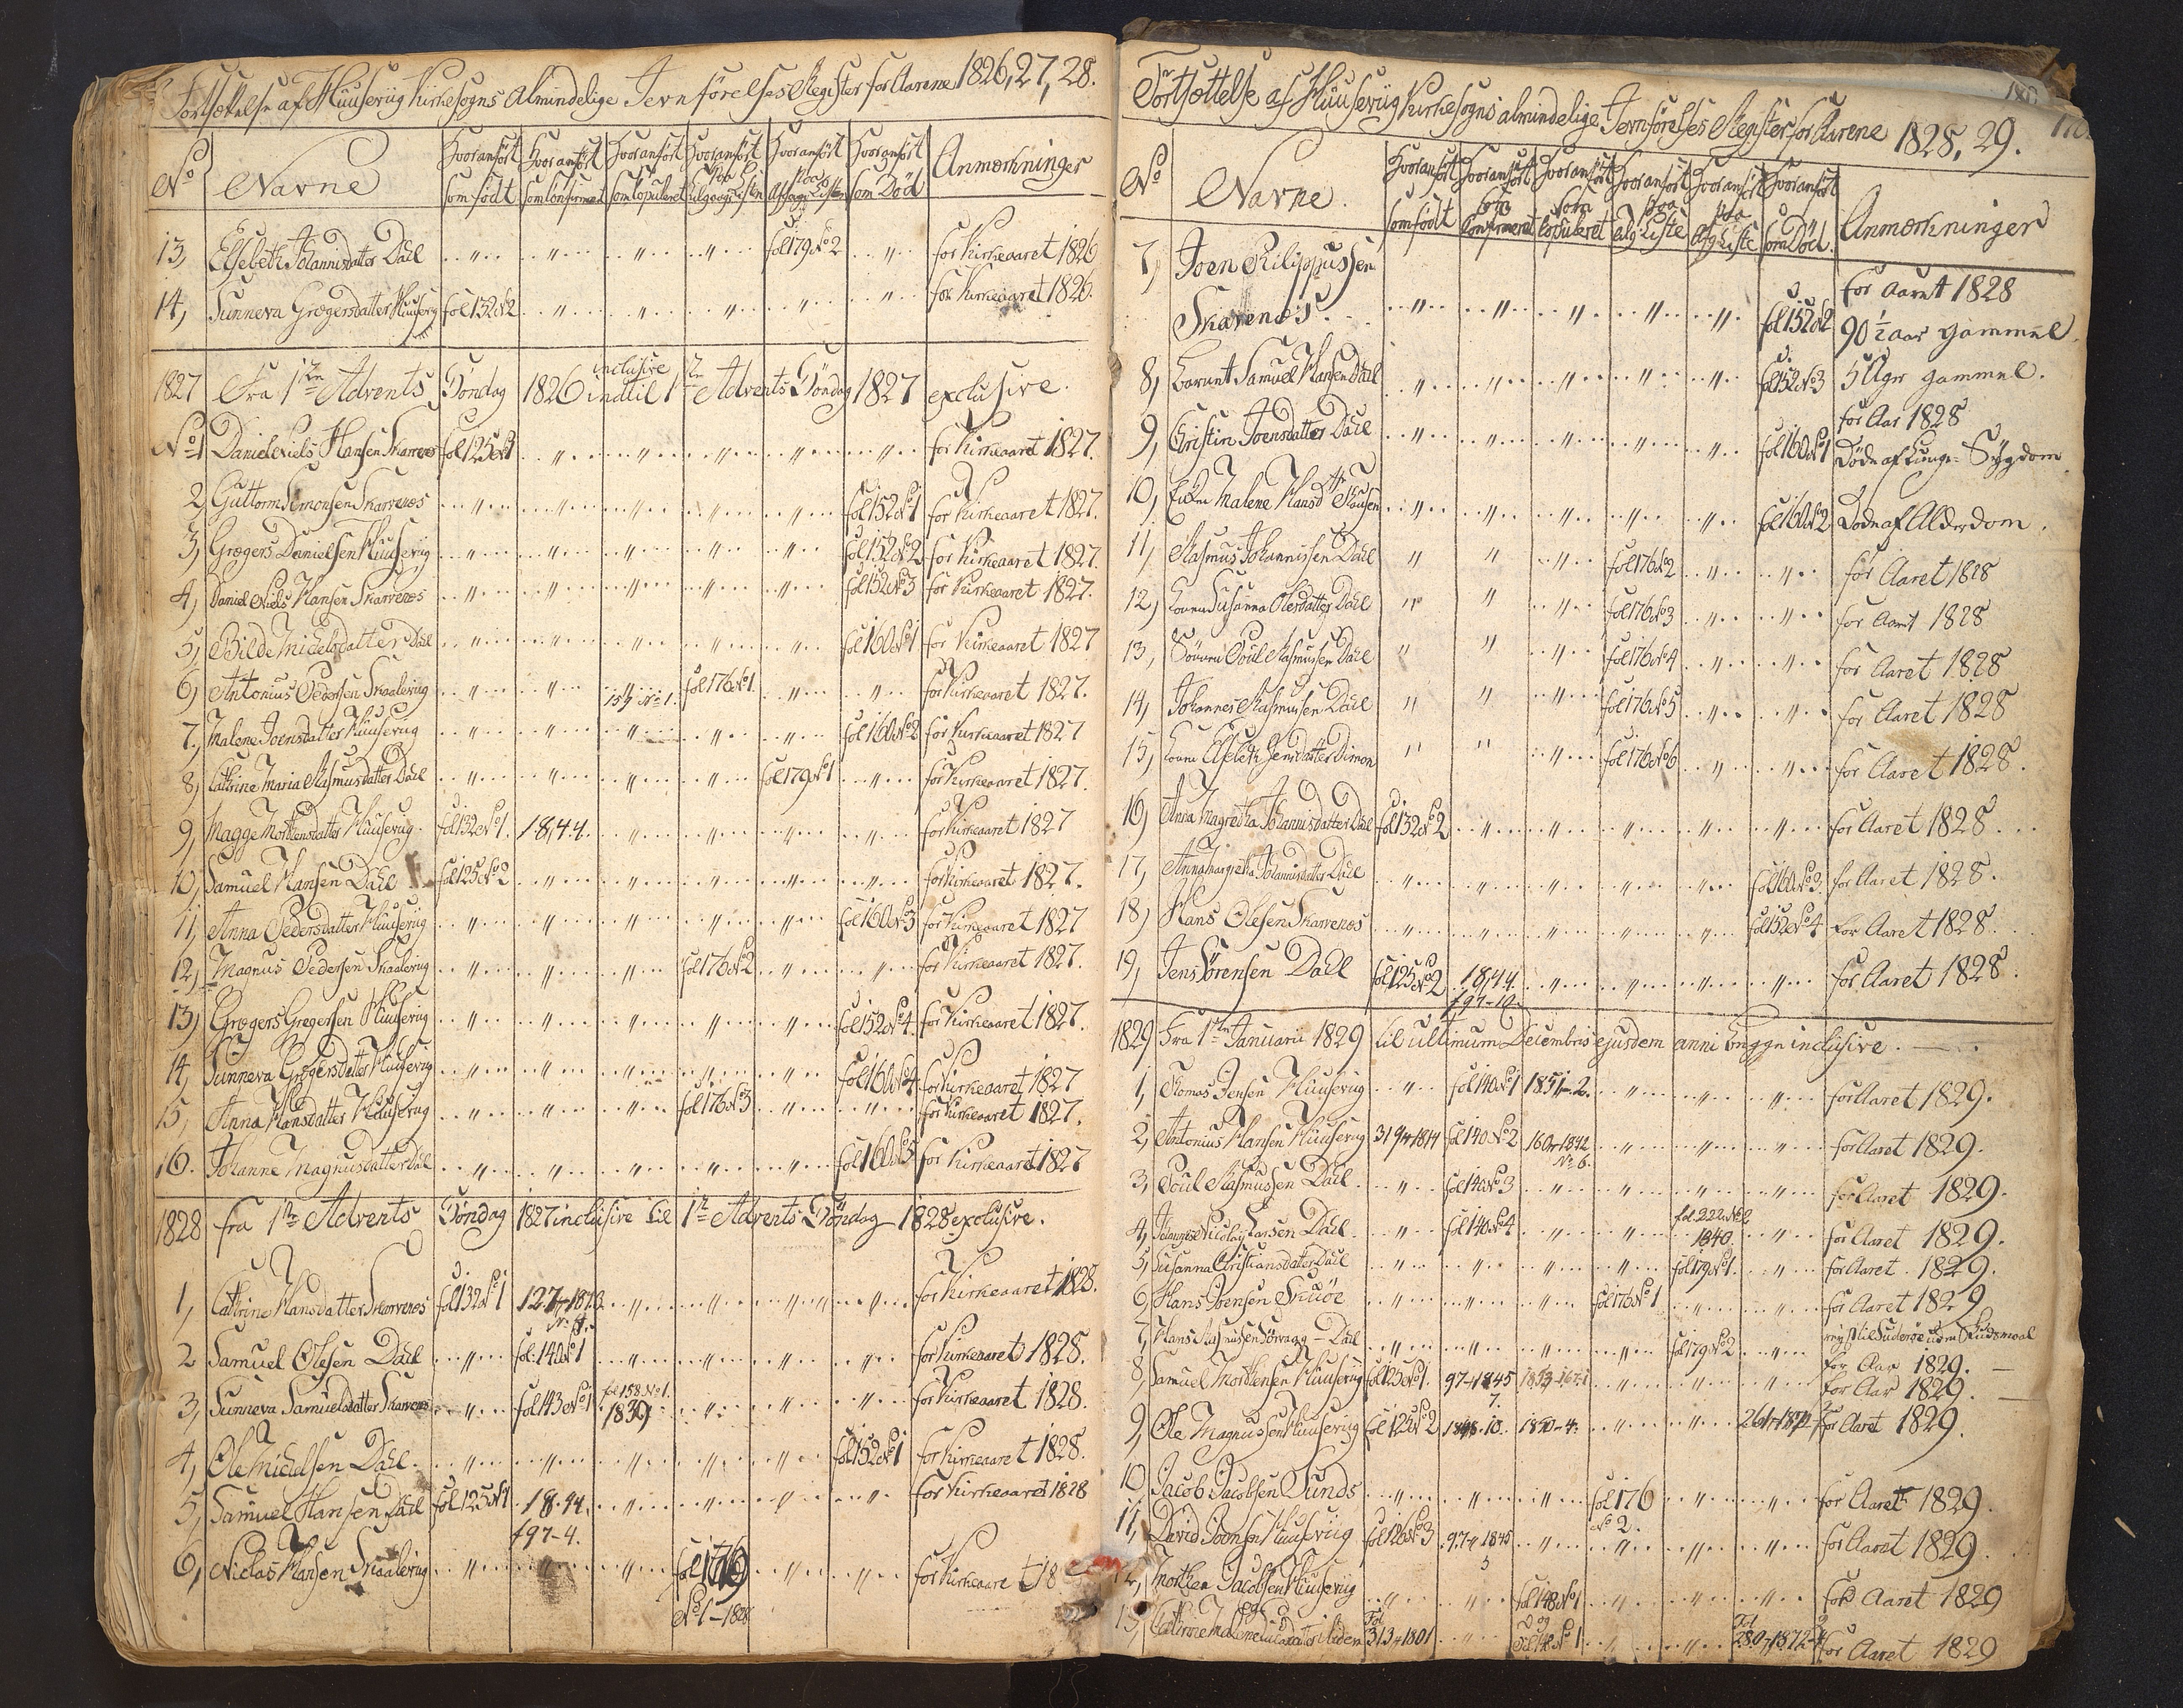 Fortsættelse af Huuseviig Kirkesogns Almindelige Jevnførelses Register for Aarene 1826, 27, 28.
No Navne Hvor anført som født Hvor anført som Confirmeret Hvor anført som Copuleret Hvor anført paa Tilgangs Listen Hvor anført paa Afgangs Listen Hvor anført som Død Anmærkninger
13, Elsebeth Johannisdatter Dahl fol 179 No 2 for Kirkeaaret 1826
14, Sunneva Grægersdatter Huusevig fol 132 No 2 for Kirkeaaret 1826.
1827 Fra 1ste Advents Søndag 1826 inclusive indtil 1ste Advents Søndag 1827 exclusive.
No 1 Daniel Niels Hansen Skarvenæs fol 125 No 1 for Kirkeaaret 1827.
2, Guttorm Simonsen Skarvenæs fol 152 No 1 for Kirkeaaret 1827.
3, Grægers Danielsen Huusevig fol 152 No 2 for Kirkeaaret 1827.
4, Daniel Niels Hansen Skarvenæs fol 152 No 3 for Kirkeaaret 1827.
5, Bilde Michelsdatter Dal fol 160 No 1 for Kirkeaaret 1827
6, Antonius Pedersen Skaalevig 154 No 1. fol 176 No 1 for Kirkeaaret 1827.
7, Malene Joensdatter Huusevig fol 160 No 2 for Kirkeaaret 1827
8, Cathrine Maria Rasmusdatter Dahl fol 179 No 1 for Kirkeaaret 1827.
9, Magge Morthensdatter Huusevig fol 132 No 1. 18,44. for Kirkeaaret 1827
10, Samuel Hansen Dahl fol 125 No 2 for Kirkeaaret 1827.
11, Anna Pedersdatter Huusevig fol 160 No 3 for Kirkeaaret 1827
12, Magnus Pedersen Skaalevig fol 176 No 2 for Kirkeaaret 1827.
13, Grægers Gregersen Huusevig fol 152 No 4. for Kirkeaaret 1827.
14, Sunneva Grægersdatter Huusevig fol 160 No 4. for Kirkeaaret 1827
15, Anna Hansdatter Huusevig fol 176 No 3 for Kirkeaaret 1827.
16. Johanne Magnusdatter Dal fol 160 No 5 for Kirkeaaret 1827
1828 fra 1ste Advents Søndag 1827 inclusive til 1ste Advents Søndag 1828 exclusive.
1, Cathrine Hansdatter Skarvenæs fol 132 No 1 for Kirkeaaret 1828.
2 Samuel Olesen Dahl fol. 140 No 1 for Kirkeaaret 1828.
3, Sunneva Samuelsdatter Skarvenæs fol 143 No 1 fol 158 No 1. 1839 for Kirkeaaret 1828.
4, Ole Michelsen Dahl. fol 152 No 1 for Kirkeaaret 1828.
5, Samuel Hansen Dahl fol 125 No 1 18.44. f 97-4. for Kirkeaaret 1828
6, Niclas Hansen Skaalevig fol 176 No 1 - 1828 for Kirkeaaret 18
Fortsættelse af Huusevig Kirkesogns almindelige Jevnførelses Register for Aarene 1828, 29.
180
No Navne. Hvor anført som født Hvor anført som Confirmeret Hvor anført som Copuleret Hvor anført paa Tilg. Liste Hvor anført paa Afg. Liste Hvor anført som Død. Anmærkninger
7, Joen Philippussen Skarenæs. fol 152 No 2 for Aaret 1828 90 1/2 aar gammel.
8, Barnet Samuel Hansen Dahl fol 152 No 3 5 Uger gammel. for Aar 1828
9, Christin Joensdatter Dahl fol 160 No 1 Døde af Lunge-Sygdom
10, Enken Malene Hansd fol 160 No 2 Døde af Alderdom.
11, Rasmus Johannissen Dahl fol 176 No 2 for Aaret 1828
12, Konen Susanna Olesdatter Dahl fol 176 No 3 for Aaret 1828
13, Sønnen Poul Rasmussen Dahl fol 176 No 4 for Aaret 1828
14, Johannes Rasmussen Dahl fol 176 No 5 for Aaret 1828
15, Konen Elsebeth Jensdatter Dimon fol 176 No 6 for Aaret 1828.
16, Anna Magretha Johannisdatter Dahl fol 132 No 2 for Aaret 1828
17, Anna Margretha Johannisdatter Dahl fol 160 No 3. for Aaret 1828.
18, Hans Olesen Skarvenæs fol 152 No 4 for Aaret 1828.
19, Jens Sørensen Dahl fol 125 No 2 18,44. f 97-10. for Aaret 1828.
1829 Fra 1ste Januarii 1829 til ultimum Decembris ejusdem anni begge inclusive.
1, Thomas Jensen Huusevig fol 140 No 1 1851-2. for Aaret 1829.
2, Antonius Hansen Huusevig fol 140 No 2 No 6. for Aaret 1829.
3, Poul Rasmussen Dahl. fol 140 No 3 for Aaret 1829.
4, Johannes Nicolay Larsen Dahl. fol 140 No 4 fol. 222 No 2 1840. for Aaret 1829.
5, Susanna Christiansdatter Dahl fol 179 No 1. for Aaret 1829.
6, Hans Joensen Skuøe fol 176 No 1 for Aaret 1829
7, Hans Rasmussen Sørvaag - Dahl fol 179 No 2 for Aar 1829.
8, Samuel Morthensen Huusevig fol 125 No 1. 97-1845 7. for Aar 1829.
9, Ole Magnussen Huusevig fol 125 No 2 1848-10. 1850-4. for Aaret 1829.
10 Jacob Jacobsen Sunds fol 176 No 2. for Aaret 1829.
11, David Joensen Huusevig fol 126 No 3 97-1845 5 for Aaret 1829
12, Morthen Jacobsen Huusevig fol 148 No 1 for Aaret 1829
13, Cathrine Malene fol 148 No 1 for Aaret 1829